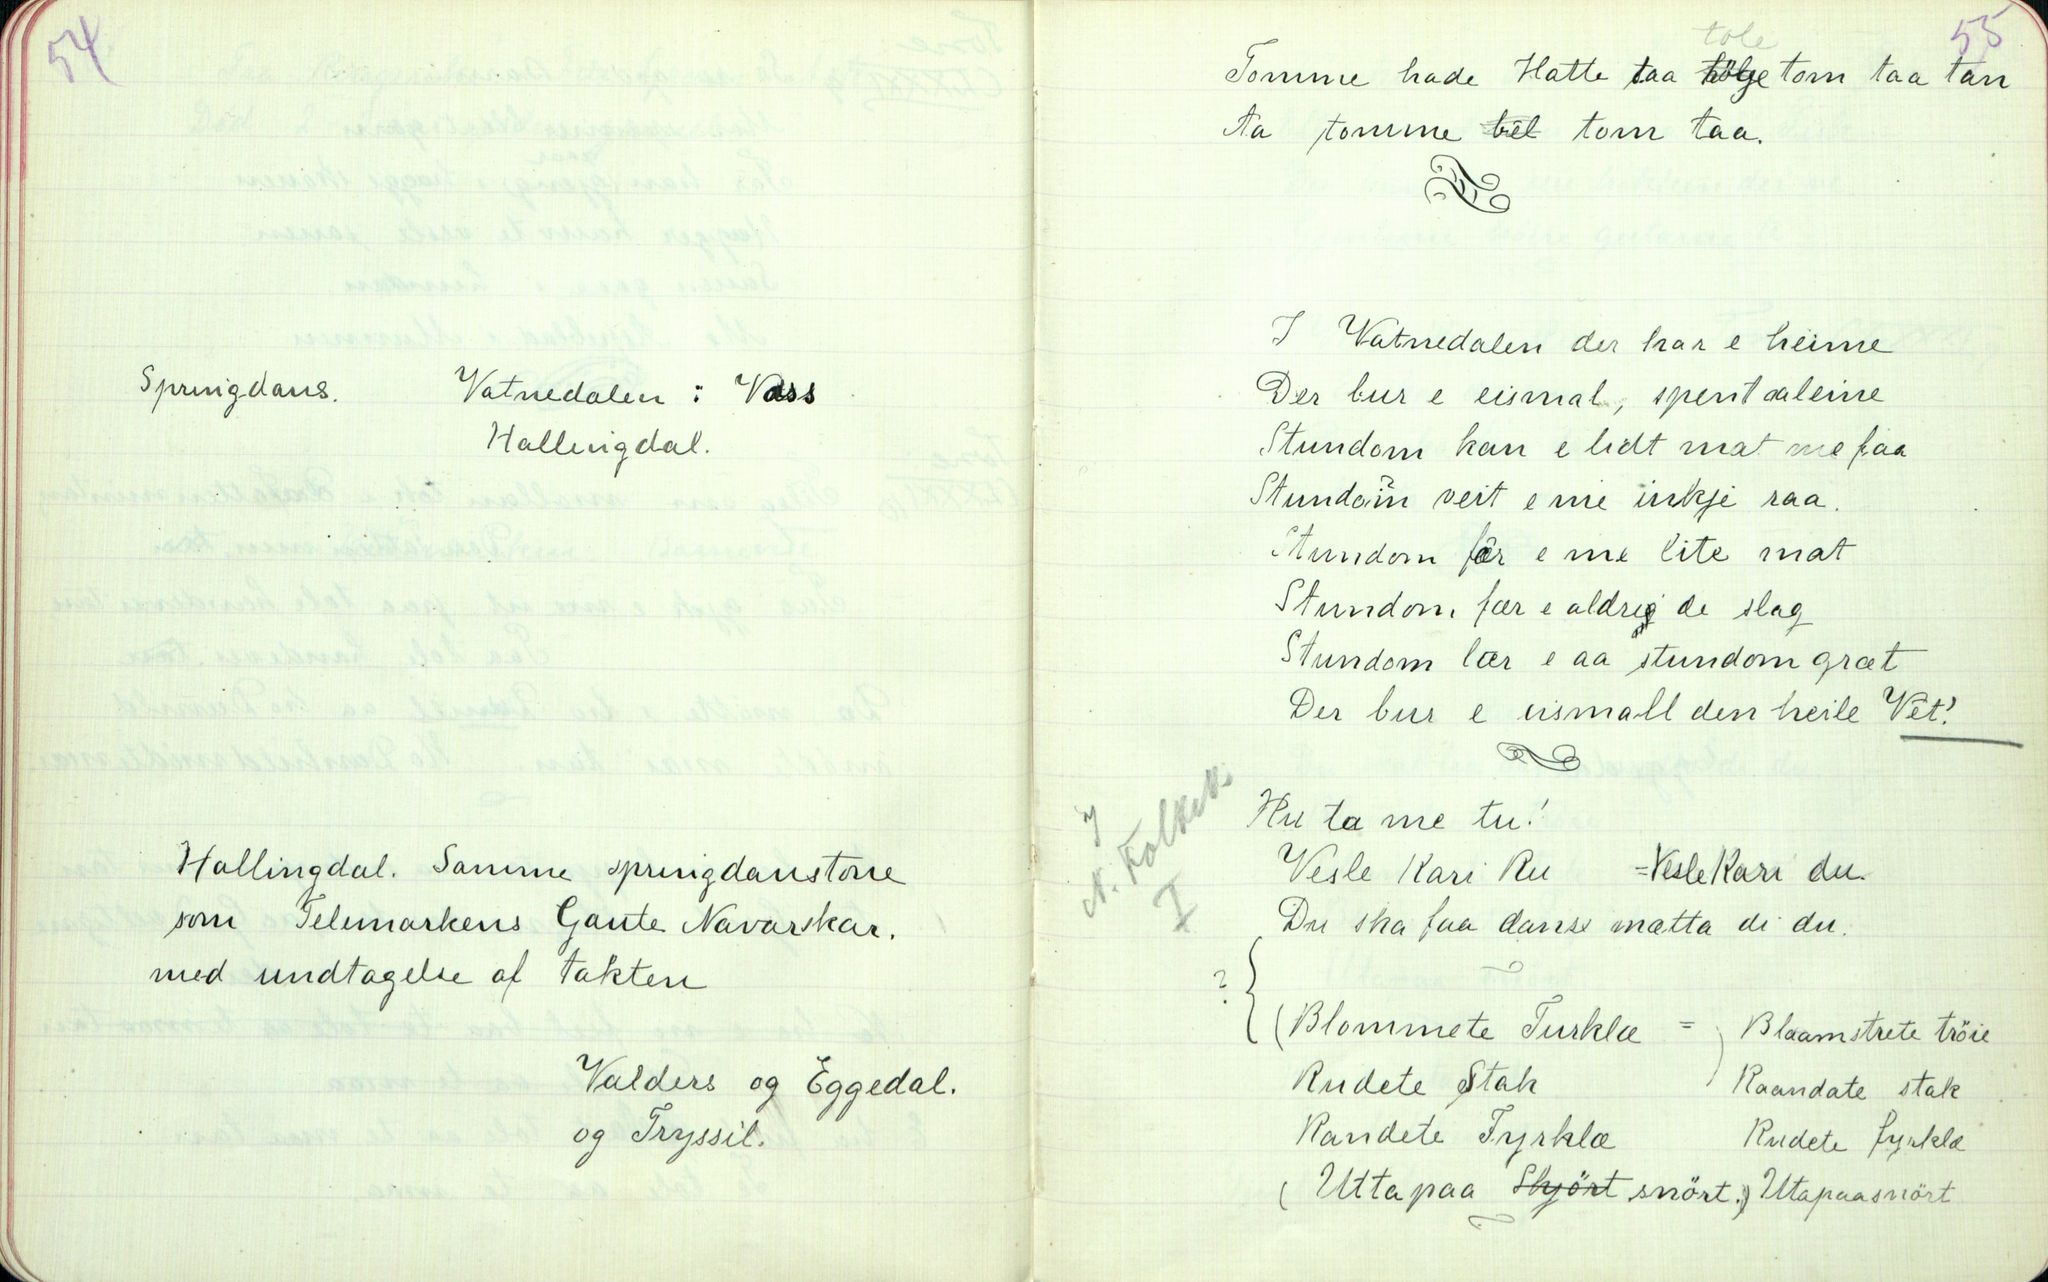 54
Springdans. Vatnedalen i Voss
Hallingdal.
Hallingdal. Samme springdanstone
som Telemarkens Gaute Navarskar.
med undtagelse af takten
Valders og Eggedal.
og Tryssil.
55
tole
Tomme hade Hatte taa tölje tom taa tan
Aa tomme tel tom taa.
I Vatnedalen der har e heime
Der bur e eismal, spent aaleine
Stundom kan e lidt mat me faa
Stundom veit e me inkje raa.
Stundom fær e me lite mat
Stundom fær e aldrig de slag
Stundom lær e aa stundom græt
Der bur e eismall den heile Vet!
Hu ta me tu!
Vesle Kari Ru =Vesle Kari du.
Du ska faa danse mætta di du.
I
N. Folkek.
I
?
(Blommete Turklæ = Blaamstrete tröie
Rudete Stak ) Raandate stak
Randete Fyrklæ Rudete fyrklæ
(Utta paa Skjört snört.) Uta paa snört